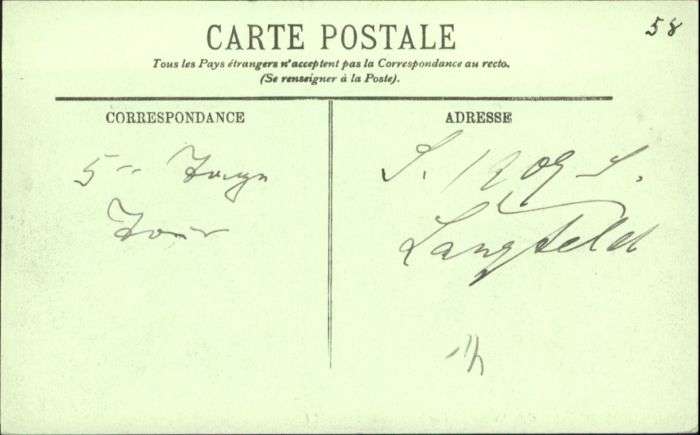 58
CARTE POSTALE
Tous les Pays étrangers n'acceptent pas la Correspondance au recto.
(Se renseigner à la Poste).
CORRESPONDANCE
ADRESSE
5
Tour
S. 1909 S.
Langfeld